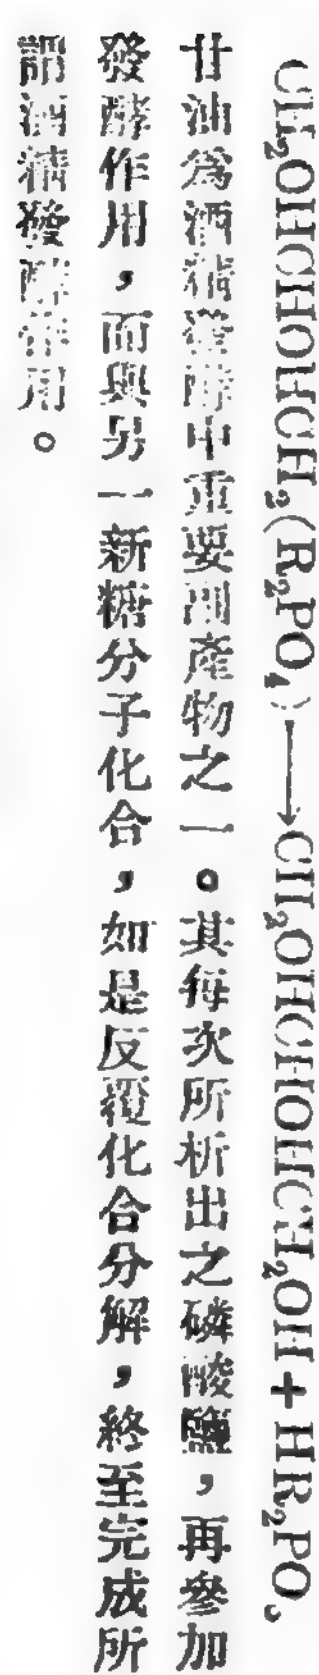 CH₂OHCHOHCH₂(R₂PO₄)⟶CH₂OHCHOHCH₂OH+HR₂PO₄
甘油爲酒精發酵中重要副產物之一。其每次所析出之磷酸鹽，再參加
發酵作用，而與另一新糖分子化合，如是反覆化合分解，終至完成所
謂酒精發酵作用。